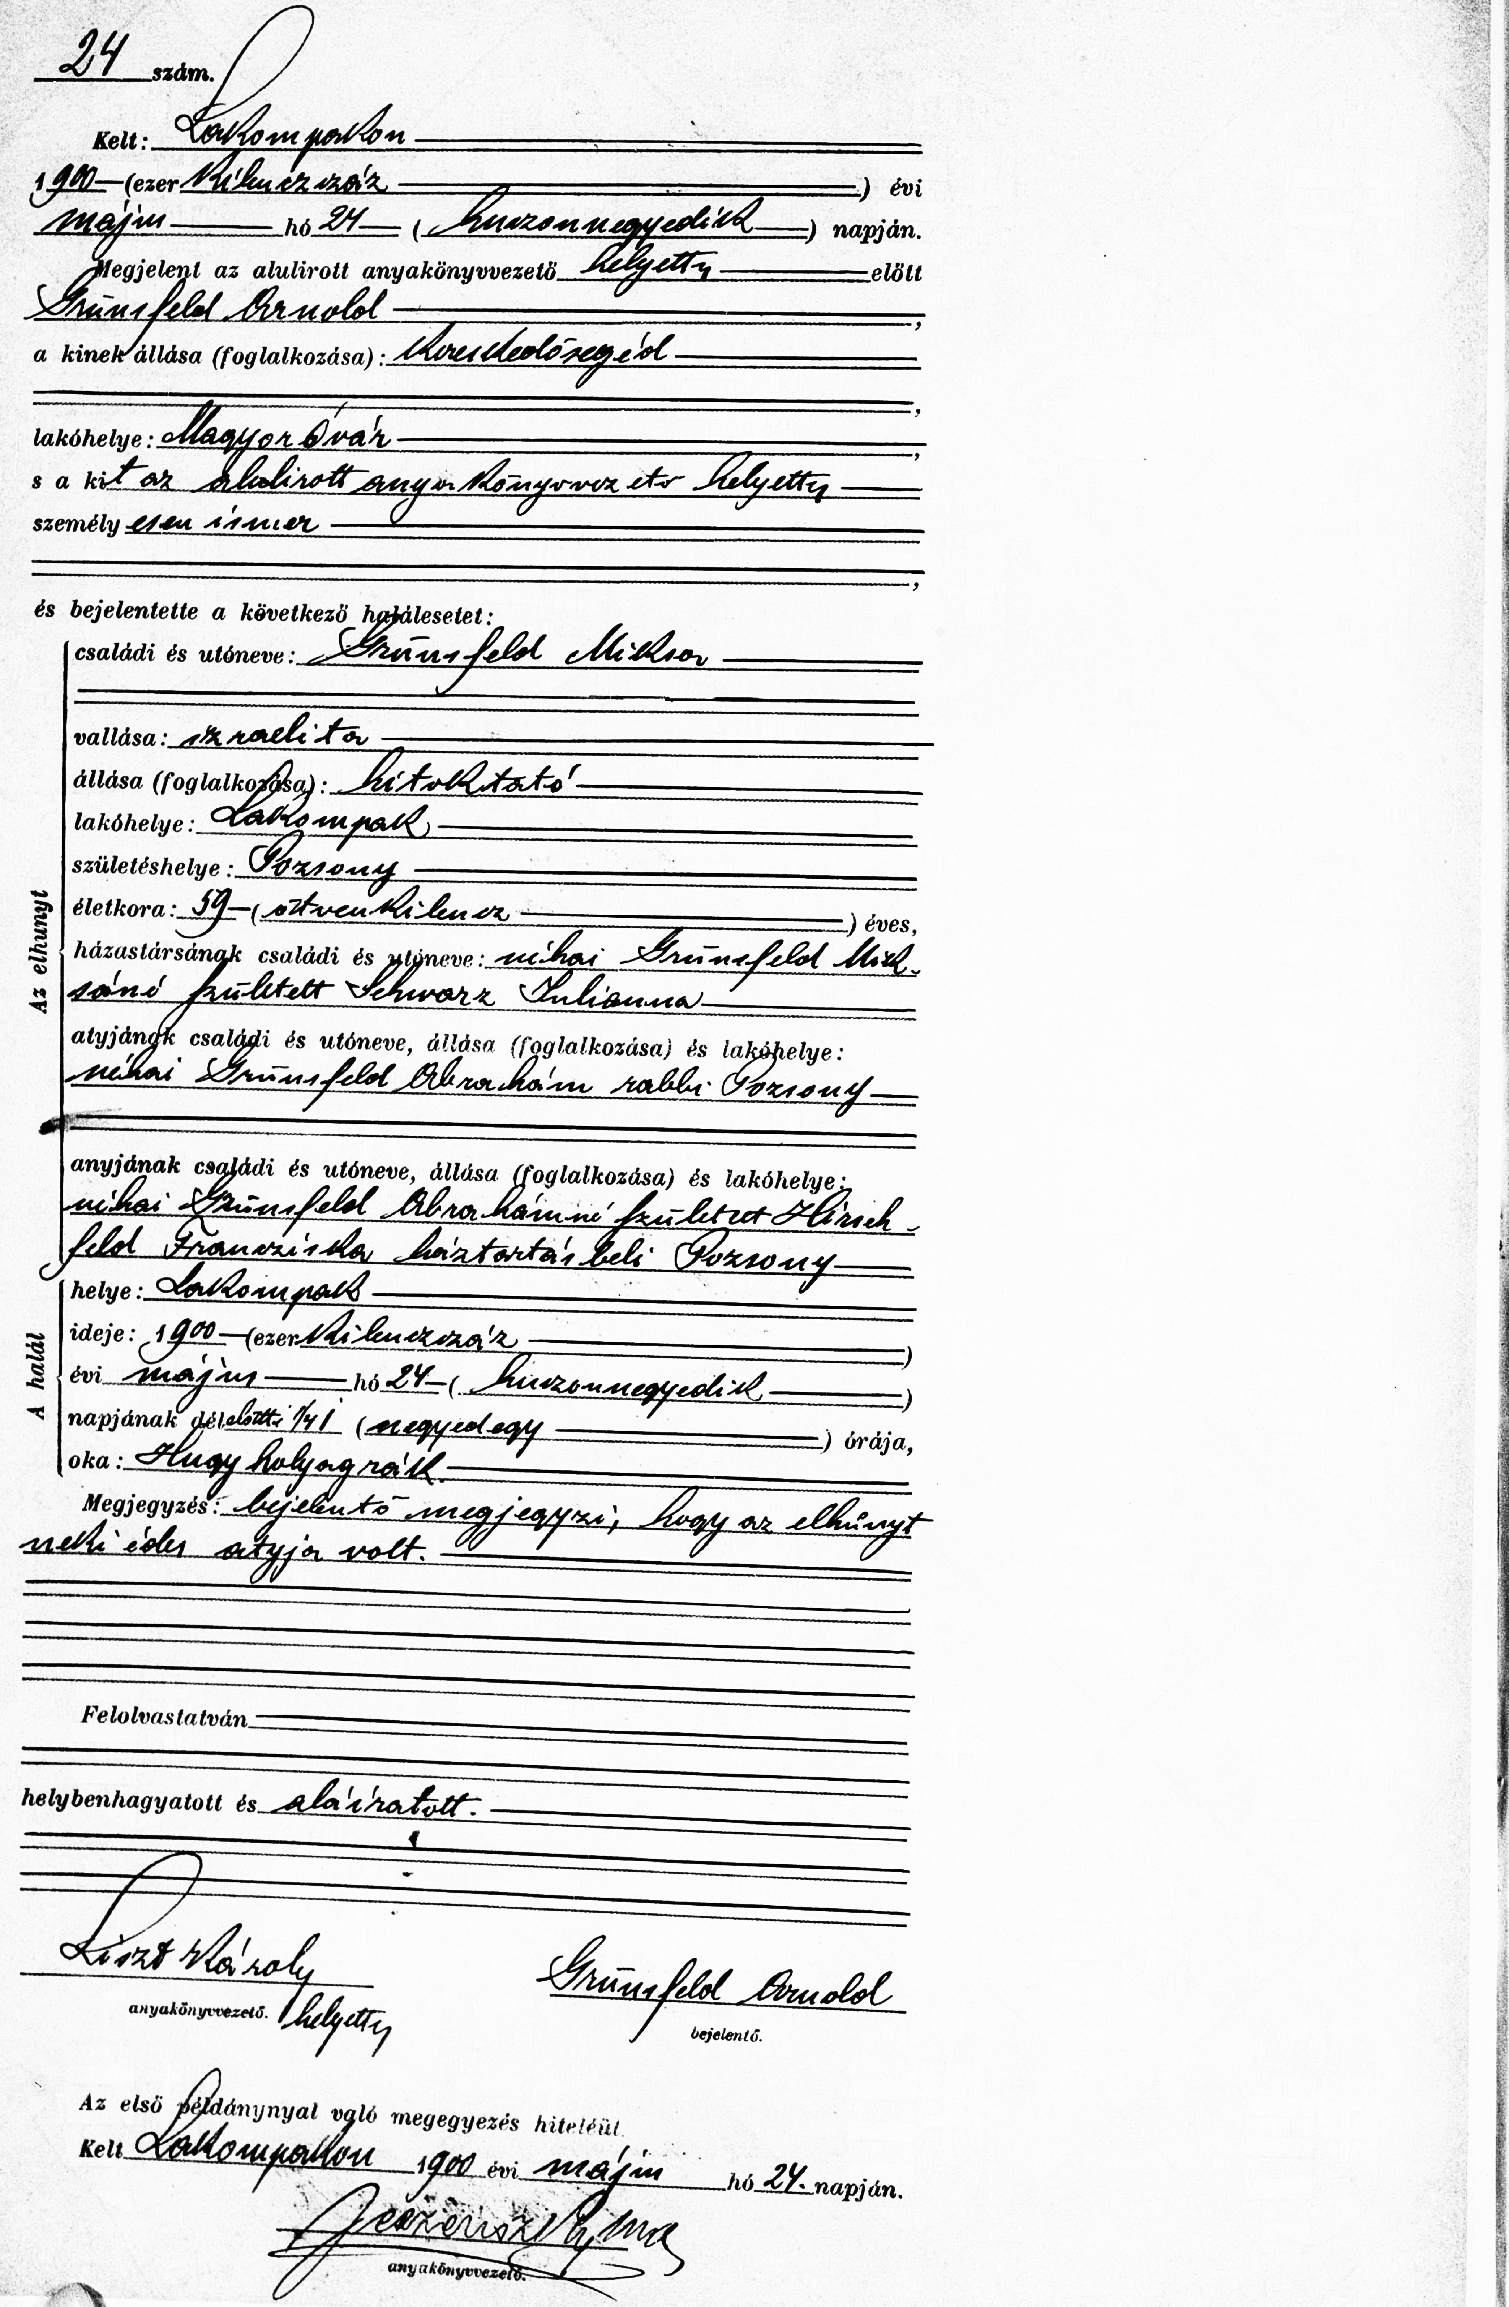 24 szám.
Kelt: Lakompakon
1900 (ezer kilenczszáz) évi
május hó 24 (huszonnegyedik) napján.
Megjelent az alulirott anyakönyvvezető helyettes előtt
Grünsfeld Arnold,
a kinek állása (foglalkozása): kereskedősegéd
,
lakóhelye: Magyar óvár,
s a kit az alulirott anyakönyvvezető helyettes
személyesen ismer
,
és bejelentette a következő halálesetet:
Az elhunyt
családi és utóneve: Grünsfeld Miksa
vallása: izraelita
állása (foglalkozása): hitoktató
lakóhelye: Lakompak
születéshelye: Pozsony
életkora: 59 (ötvenkilencz) éves,
házastársának családi és utóneve: néhai Grünsfeld Mik-
sáné született Schwarz Julianna
atyjának családi és utóneve, állása (foglalkozása) és lakóhelye:
néhai Grünsfeld Abrahám rabbi Pozsony
anyjának családi és utóneve, állása (foglalkozása) és lakóhelye:
néhai Grünsfeld Abrahámné született Hirsch-
feld Francziska háztartásbeli Pozsony
A halál
helye: Lakompak
ideje: 1900 (ezer kilenczszáz)
évi május hó 24 (huszonnegyedik)
napjának délelőtti 1/4 1 (negyedegy) órája,
oka: Hugyholyagrák.
Megjegyzés: bejelentő megjegyzi, hogy az elhúnyt
neki édes atyja volt.
Felolvastatván
helybenhagyatott és aláíratott.
Liszt Károly
anyakönyvvezető. helyettes
Grünsfeld Arnold
bejelentő.
Az első példánynyal való megegyezés hiteléül
Kelt Lakompakon 1900 évi május hó 24. napján.
anyakönyvvezető.